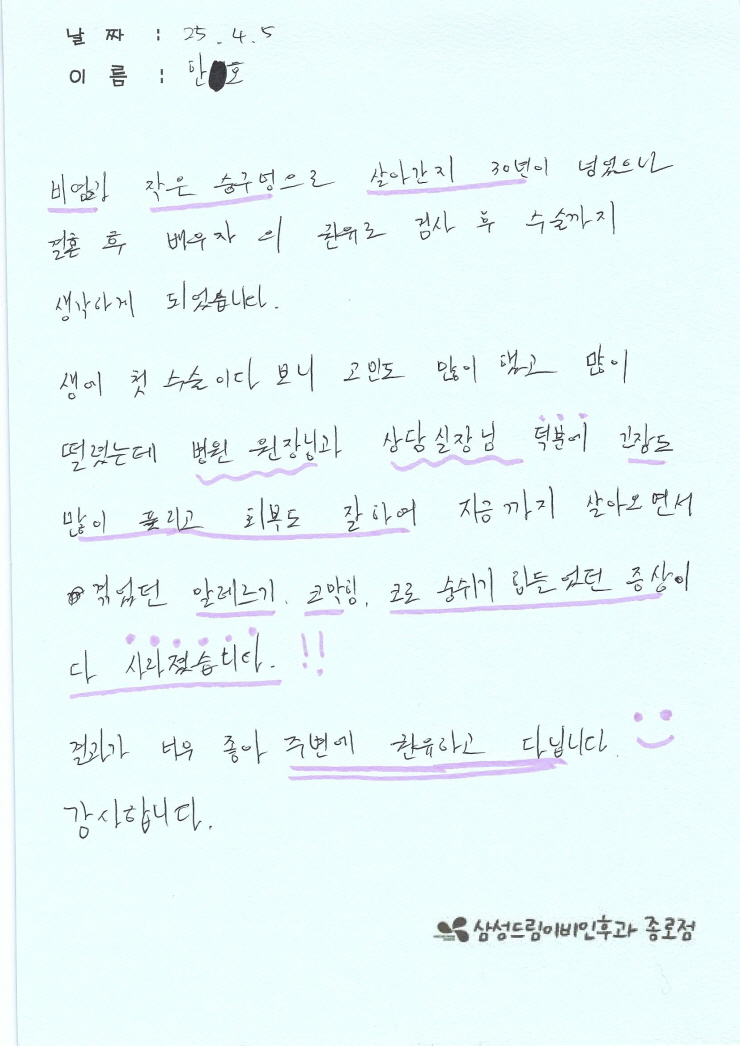 날 짜 : 25. 4. 5
이 름 : 안 호
비염과 작은 숨구멍으로 살아간지 30년이 넘었으나
결혼 후 배우자의 권유로 검사 후 수술까지
생각하게 되었습니다.
생에 첫 수술이다 보니 고민도 많이 됐고 많이
떨렸는데 병원 원장님과 상담실장님 덕분에 긴장도
많이 풀리고 회복도 잘하여 지금까지 살아오면서
겪었던 알레르기, 코막힘, 코로 숨쉬기 힘들었던 증상이
다 사라졌습니다. !!
결과가 너무 좋아 주변에 권유하고 다닙니다.
감사합니다.
삼성드림이비인후과 종로점